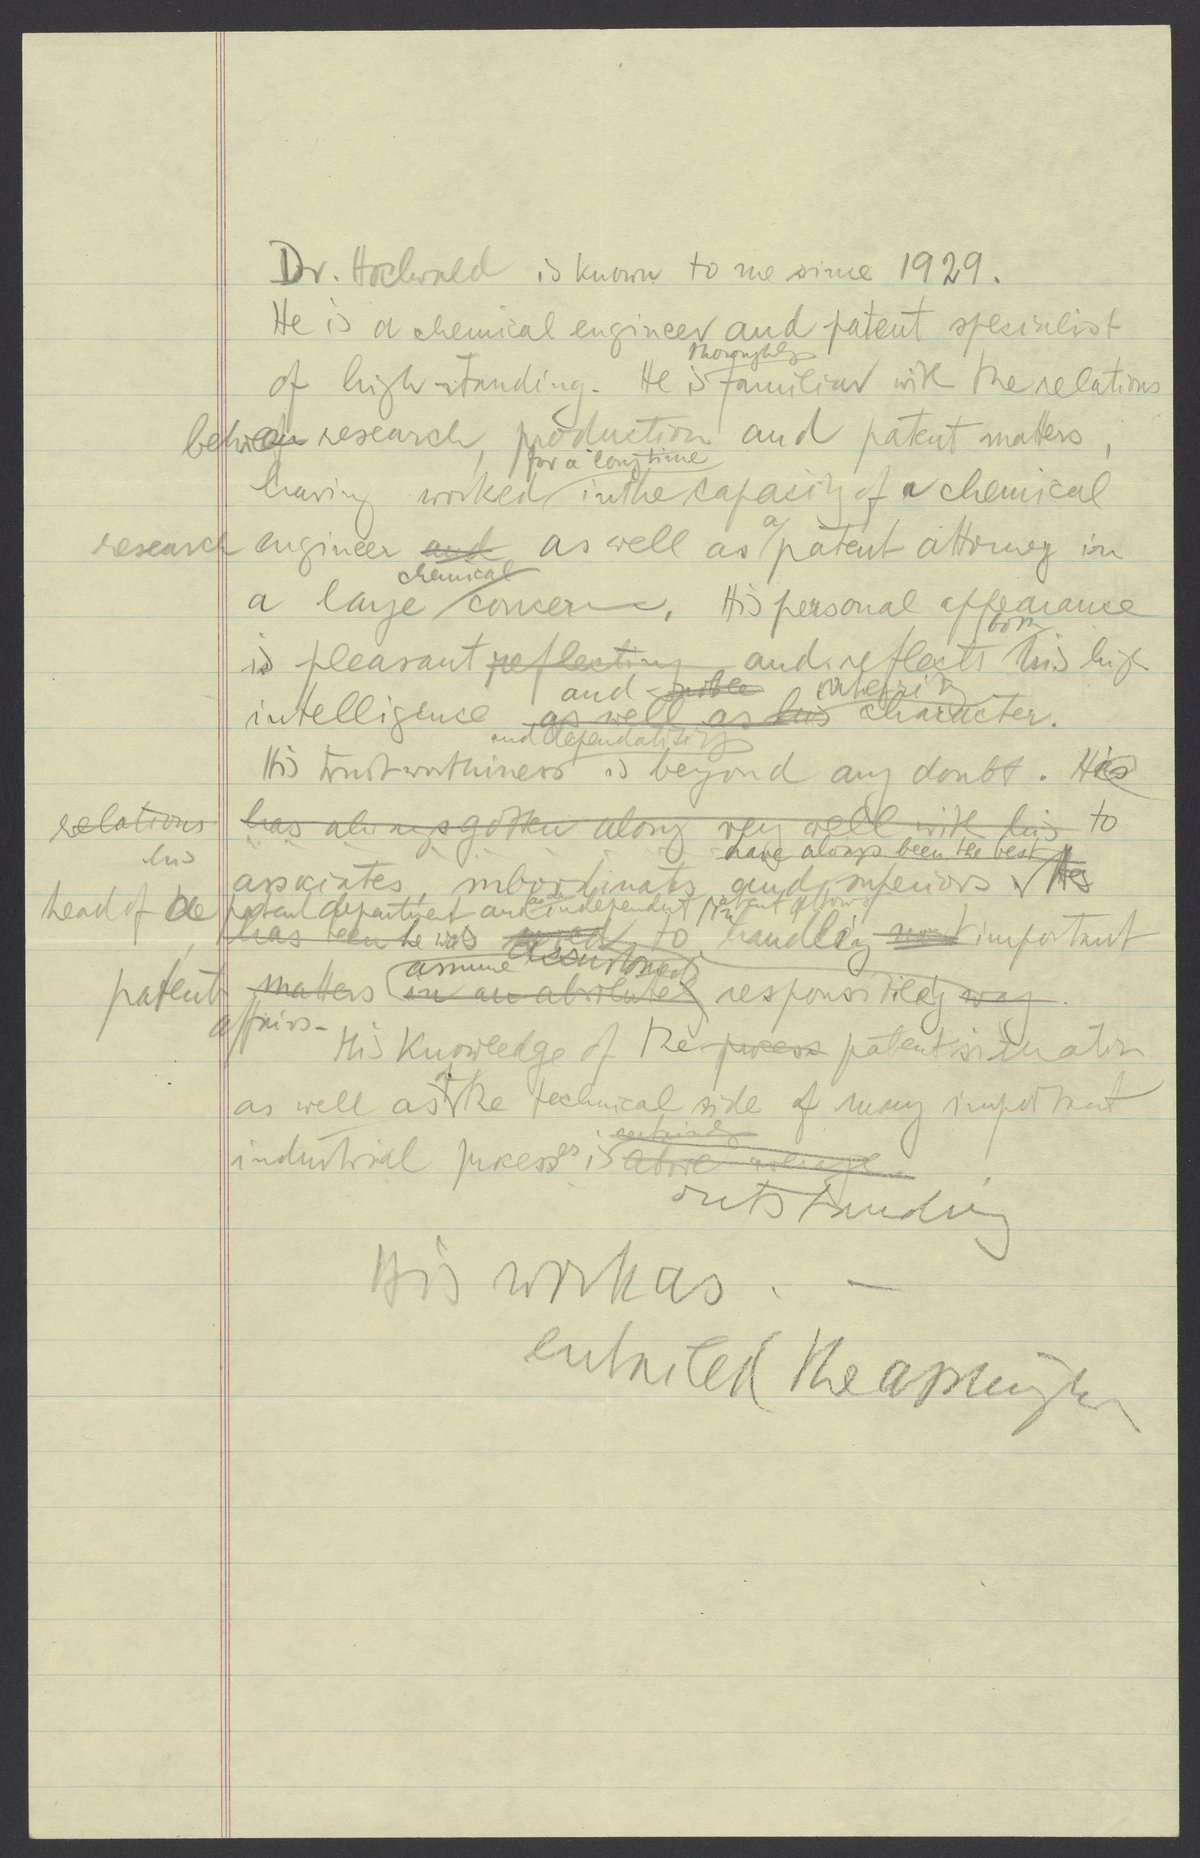 Dr. Hochwald is known to me since 1929.
He is a chemical engineer and patent specialist
thoroughly
of high standing. He is familiar with the relations
between research, production and patent matters,
for a long time
having worked in the capacity of a chemical
research engineer and as well as a patent attorney in
chemical
a large concern. His personal appearance
both
is pleasant reflecting and reflects his high
and noble
intelligence as well as his character.
and dependability
His trustworthiness is beyond any doubt. His
relations has always gotten along very well with his to
his
have always been the best
associates, subordinates and superiors. He
head of the patent department and as independent patent attorney
has been he was used to handling most important
assume accustomed
patent matters in an absolutely responsibility way.
affairs
His knowledge of the process patent situation
as well as of the technical side of many important
certainly
industrial processes is above average.
outstanding
His work as . —
entailed the